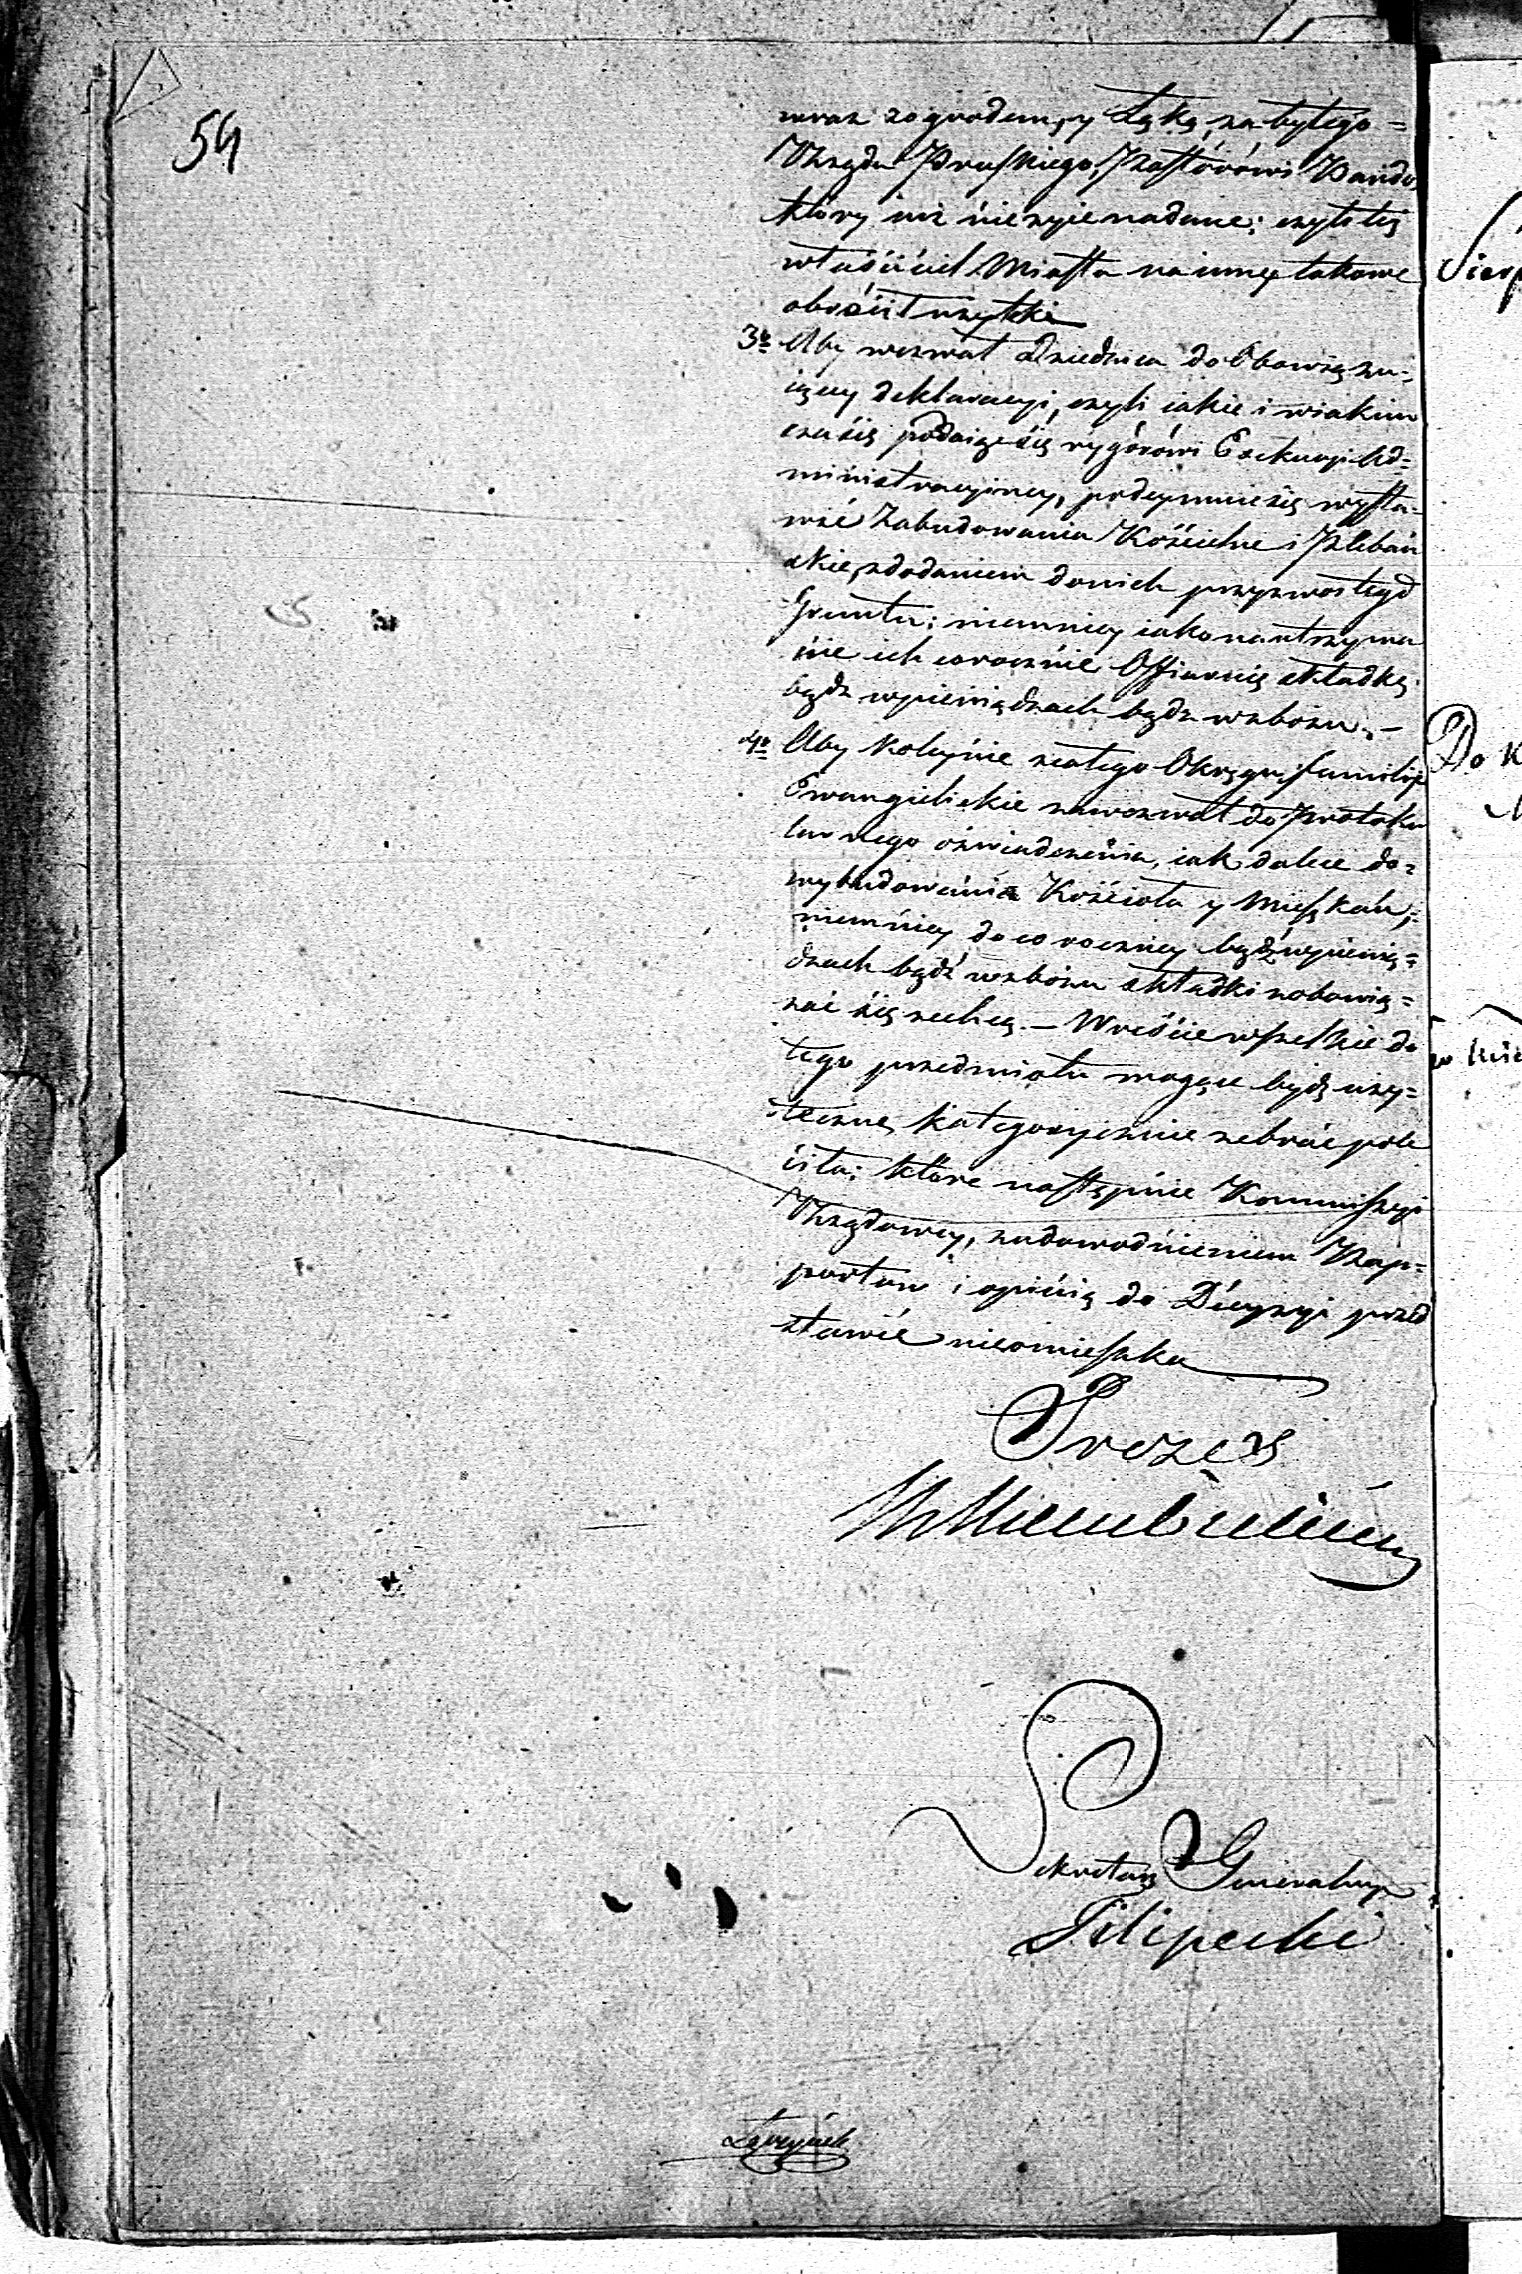 54
wraz zogrodem, y Łąką, za byłego =
Rządu Pruskiego, Pastorowi Bando
który iuż nieżyie nadane; czyli też
właściciel Miasta na inny takowe
obrócił użytek
3o Aby wezwał Dziedzica do Obowiązu=
iący deklaracyi, czyli iakie i wiakim
czasie podaiąc się rygorowi Exekucyi Ad=
ministracyiney, podeymuie się wysta=
wić Zabudowania Kościelne i Plebań
skie, zdodaniem donich przyzwoitego
Gruntu: niemniey iako na utrzyma
nie ich corocznie Offiaruię składkę
bądz wpieniądzach bądz wzbożu. –
4o Aby koleynie zcałego Okręgu, familie
Ewangielickie zawezwał do Protoku
larnego oświadczenia, iak dalece do=
wybudowania Kościoła y Mieszkań,
niemniey do coroczney bądź wpienią=
dzach bądź wzbożu składki zobowią=
zać się zechcą. – Wreście wszelkie do
tego przedmiotu mogące bydź uży=
teczne, kategorycznie zebrać pole
ciła; które następnie Kommissyi
Rządowey, zudowodnieniem Rap=
portem i opinią do Decyzyi przed
stawić nieomieszka
Prezes
Sekretarz Gnieralny
Filipecki
Sierp
Do K